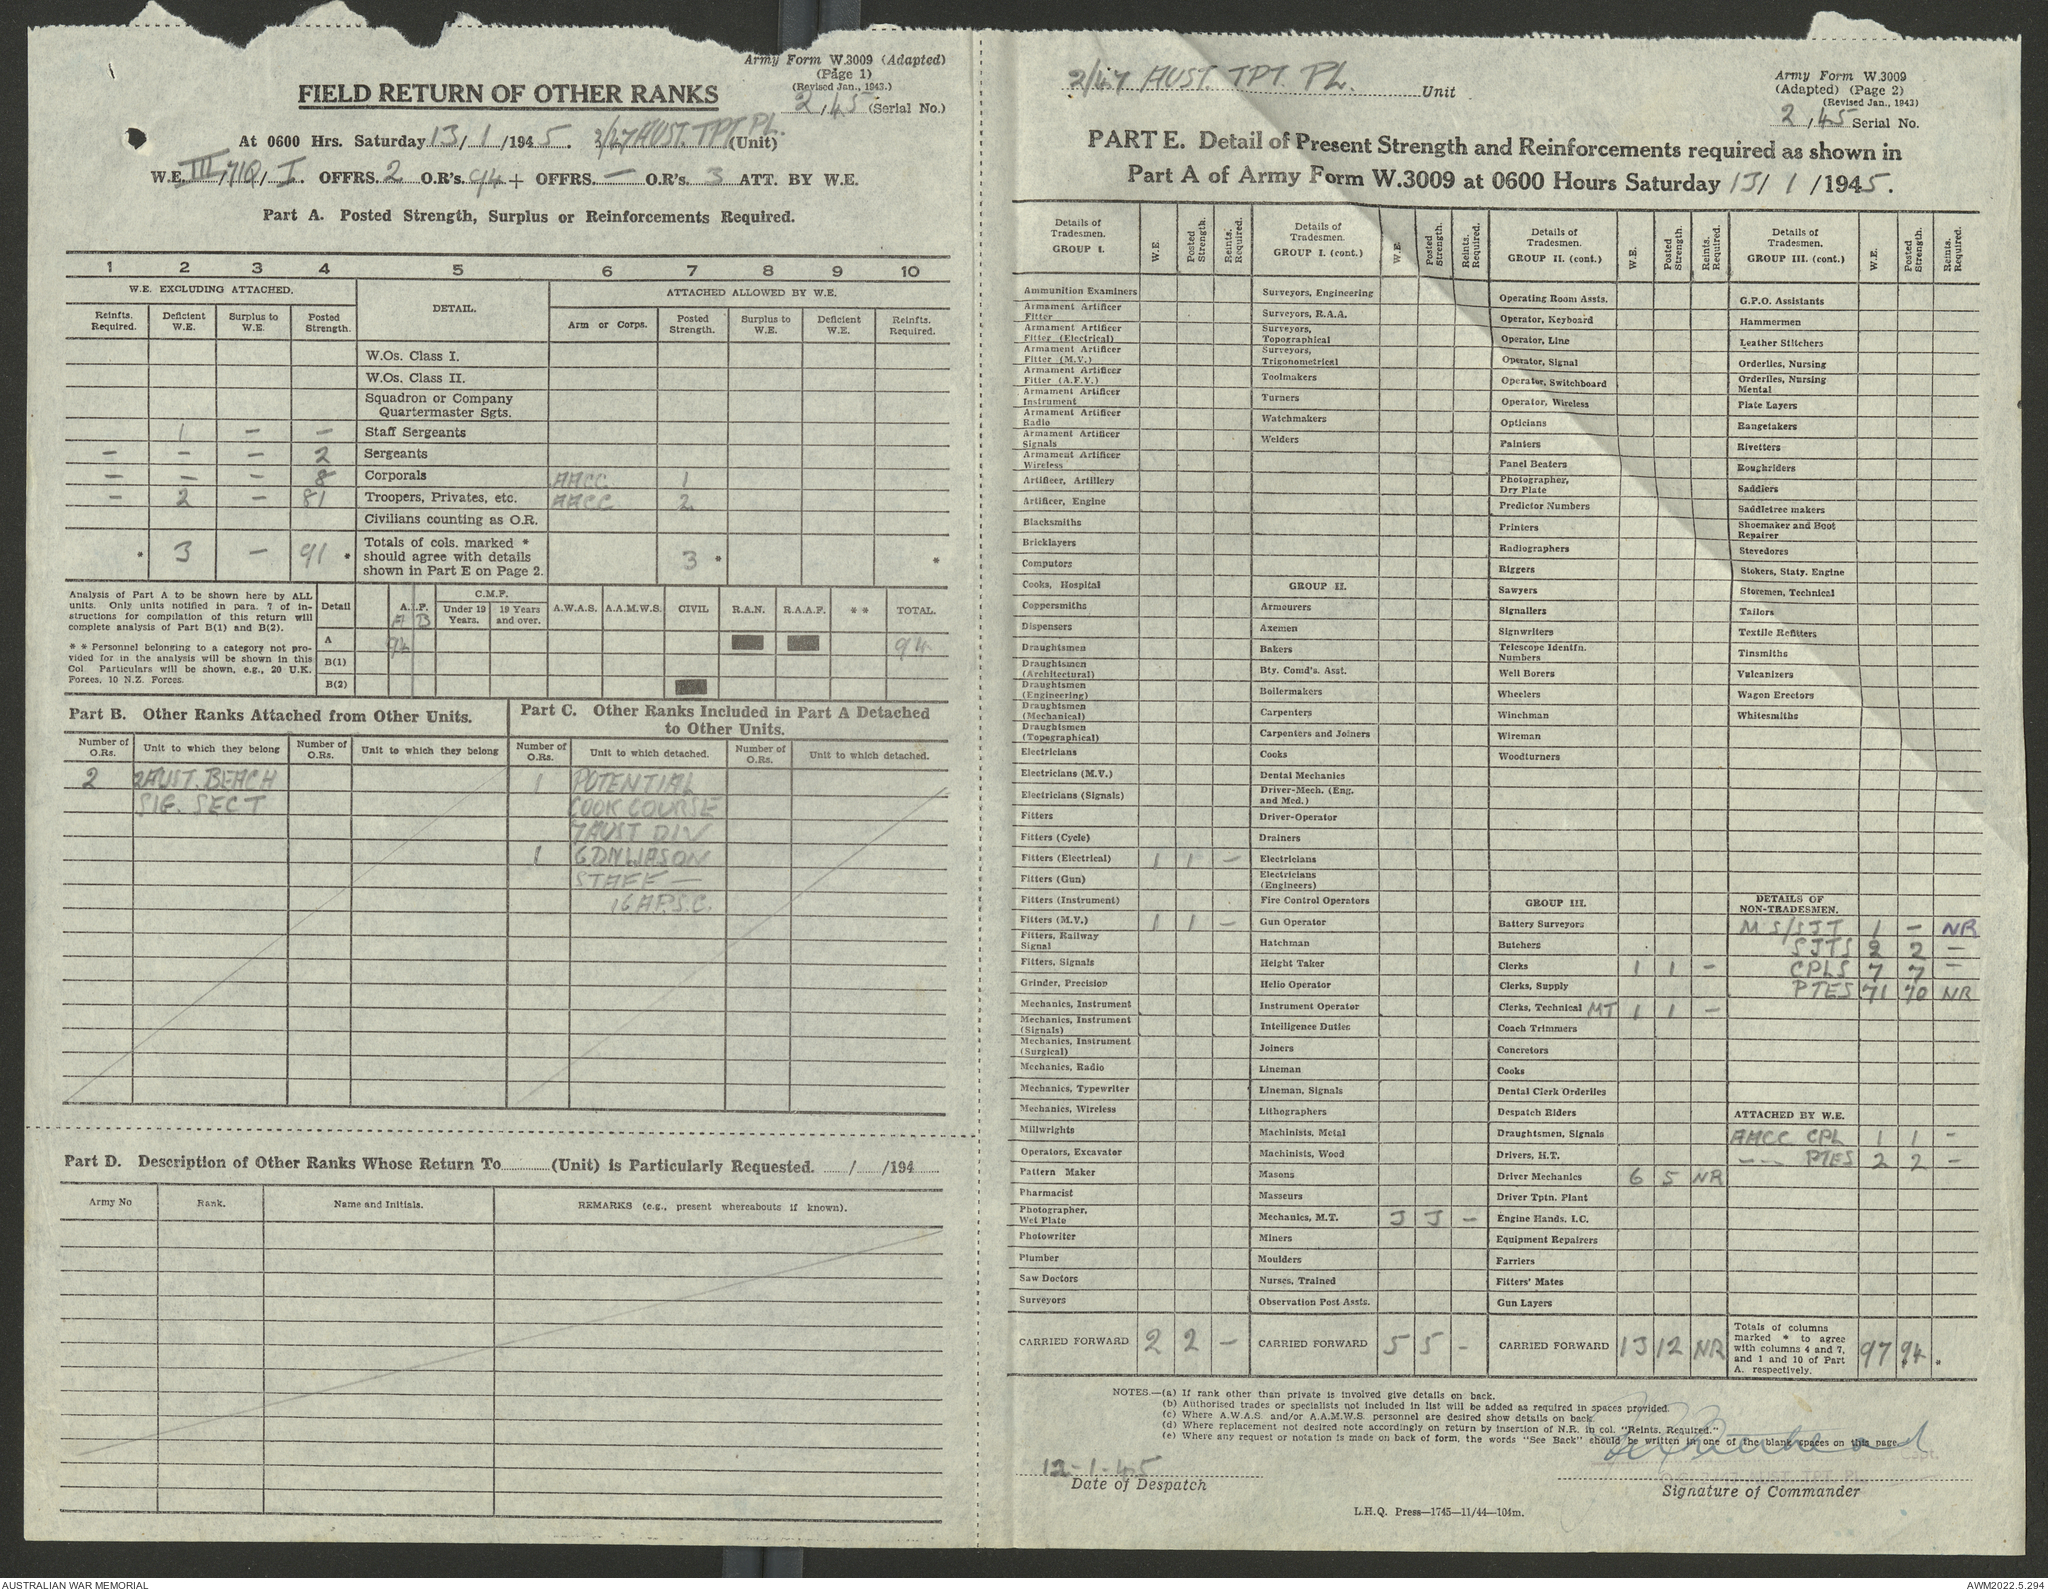 Army Form W.3009 (Adapted)
(Page 1)
(Revised Jan., 1943.)
2/45 (Serial No.)
FIELD RETURN OF OTHER RANKS
At 0600 Hrs. Saturday 13/1/1945. 2/47 AUST. TPT PL. (Unit)
W.E. III/710/I. OFFRS. 2 O.R's. 94 + OFFRS. — O.R's. 3 ATT. BY W.E.
Part A. Posted Strength, Surplus or Reinforcements Required.
1 2 3 4 5 6 7 8 9 10
W.E. EXCLUDING ATTACHED. DETAIL. ATTACHED ALLOWED BY W.E.
Reinfts. Required. Deficient W.E. Surplus to W.E. Posted Strength. Arm or Corps. Posted Strength. Surplus to W.E. Deficient W.E. Reinfts. Required.
W.Os. Class I.
W.Os. Class II.
Squadron or Company
Quartermaster Sgts.
1 — — Staff Sergeants
— — — 2 Sergeants
— — — 8 Corporals AACC 1
— 2 — 81 Troopers, Privates, etc. AACC 2
Civilians counting as O.R.
* 3 — 91 * Totals of cols. marked * should agree with details shown in Part E on Page 2. 3 * *
Analysis of Part A to be shown here by ALL
units. Only units notified in para. 7 of in-
structions for compilation of this return will
complete analysis of Part B(1) and B(2).
* * Personnel belonging to a category not pro-
vided for in the analysis will be shown in this
Col. Particulars will be shown, e.g., 20 U.K.
Forces, 10 N.Z. Forces.
Detail A.I.F. A B C.M.F. Under 19 Years. 19 Years and over. A.W.A.S. A.A.M.W.S. CIVIL R.A.N. R.A.A.F. * * TOTAL.
A 94 94
B(1)
B(2)
Part B. Other Ranks Attached from Other Units.
Part C. Other Ranks Included in Part A Detached
to Other Units.
Number of O.Rs. Unit to which they belong Number of O.Rs. Unit to which they belong Number of O.Rs. Unit to which detached. Number of O.Rs. Unit to which detached.
2 2 AUST. BEACH 1 POTENTIAL
SIG. SECT COOK COURSE
7 AUST DIV
1 GDN LIASON
STAFF —
16 A.P.S.C.
Part D. Description of Other Ranks Whose Return To (Unit) is Particularly Requested. / /194
Army No Rank. Name and Initials. REMARKS (e.g., present whereabouts if known).
2/47 AUST. TPT. PL. Unit
Army Form W.3009
(Adapted) (Page 2)
(Revised Jan., 1943)
2/45 Serial No.
PART E. Detail of Present Strength and Reinforcements required as shown in
Part A of Army Form W.3009 at 0600 Hours Saturday 13/1/1945.
Details of Tradesmen. GROUP I. W.E. Posted Strength. Reints. Required.
Ammunition Examiners
Armament Artificer Fitter
Armament Artificer Fitter (Electrical)
Armament Artificer Fitter (M.V.)
Armament Artificer Fitter (A.F.V.)
Armament Artificer Instrument
Armament Artificer Radio
Armament Artificer Signals
Armament Artificer Wireless
Artificer, Artillery
Artificer, Engine
Blacksmiths
Bricklayers
Computors
Cooks, Hospital
Coppersmiths
Dispensers
Draughtsmen
Draughtsmen (Architectural)
Draughtsmen (Engineering)
Draughtsmen (Mechanical)
Draughtsmen (Topographical)
Electricians
Electricians (M.V.)
Electricians (Signals)
Fitters
Fitters (Cycle)
Fitters (Electrical) 1 1 —
Fitters (Gun)
Fitters (Instrument)
Fitters (M.V.) 1 1 —
Fitters, Railway Signal
Fitters, Signals
Grinder, Precision
Mechanics, Instrument
Mechanics, Instrument (Signals)
Mechanics, Instrument (Surgical)
Mechanics, Radio
Mechanics, Typewriter
Mechanics, Wireless
Millwrights
Operators, Excavator
Pattern Maker
Pharmacist
Photographer, Wet Plate
Photowriter
Plumber
Saw Doctors
Surveyors
CARRIED FORWARD 2 2 —
Details of Tradesmen. GROUP I. (cont.) W.E. Posted Strength. Reints. Required.
Surveyors, Engineering
Surveyors, R.A.A.
Surveyors, Topographical
Surveyors, Trigonometrical
Toolmakers
Turners
Watchmakers
Welders
GROUP II.
Armourers
Axemen
Bakers
Bty. Comd's. Asst.
Boilermakers
Carpenters
Carpenters and Joiners
Cooks
Dental Mechanics
Driver-Mech. (Eng. and Med.)
Driver-Operator
Drainers
Electricians
Electricians (Engineers)
Fire Control Operators
Gun Operator
Hatchman
Height Taker
Helio Operator
Instrument Operator
Intelligence Duties
Joiners
Lineman
Lineman, Signals
Lithographers
Machinists, Metal
Machinists, Wood
Masons
Masseurs
Mechanics, M.T. 3 3 —
Miners
Moulders
Nurses, Trained
Observation Post Assts.
CARRIED FORWARD 5 5 -
Details of Tradesmen. GROUP II. (cont.) W.E. Posted Strength. Reints. Required.
Operating Room Assts.
Operator, Keyboard
Operator, Line
Operator, Signal
Operator, Switchboard
Operator, Wireless
Opticians
Painters
Panel Beaters
Photographer, Dry Plate
Predictor Numbers
Printers
Radiographers
Riggers
Sawyers
Signallers
Signwriters
Telescope Identfn. Numbers
Well Borers
Wheelers
Winchman
Wireman
Woodturners
GROUP III.
Battery Surveyors
Butchers
Clerks 1 1 —
Clerks, Supply
Clerks, Technical MT 1 1 —
Coach Trimmers
Concretors
Cooks
Dental Clerk Orderlies
Despatch Riders
Draughtsmen, Signals
Drivers, H.T.
Driver Mechanics 6 5 NR
Driver Tptn. Plant
Engine Hands, I.C.
Equipment Repairers
Farriers
Fitters' Mates
Gun Layers
CARRIED FORWARD 13 12 NR
Details of Tradesmen. GROUP III. (cont.) W.E. Posted Strength. Reints. Required.
G.P.O. Assistants
Hammermen
Leather Stitchers
Orderlies, Nursing
Orderlies, Nursing Mental
Plate Layers
Rangetakers
Rivetters
Roughriders
Saddlers
Saddletree makers
Shoemaker and Boot Repairer
Stevedores
Stokers, Staty. Engine
Storemen, Technical
Tailors
Textile Refitters
Tinsmiths
Vulcanizers
Wagon Erectors
Whitesmiths
DETAILS OF NON-TRADESMEN.
M S/SJT 1 — NR
SJTS 2 2 —
CPLS 7 7 —
PTES 71 70 NR
ATTACHED BY W.E.
AACC CPL 1 1 —
—— PTES 2 2 —
Totals of columns marked * to agree with columns 4 and 7, and 1 and 10 of Part A. respectively. 97 94 *
NOTES.—(a) If rank other than private is involved give details on back.
(b) Authorised trades or specialists not included in list will be added as required in spaces provided.
(c) Where A.W.A.S. and/or A.A.M.W.S. personnel are desired show details on back.
(d) Where replacement not desired note accordingly on return by insertion of N.R. in col. "Reints. Required."
(e) Where any request or notation is made on back of form, the words "See Back" should be written in one of the blank spaces on this page.
12-1-45
Date of Despatch
Signature of Commander
L.H.Q. Press—1745—11/44—104m.
AUSTRALIAN WAR MEMORIAL
AWM2022.5.294